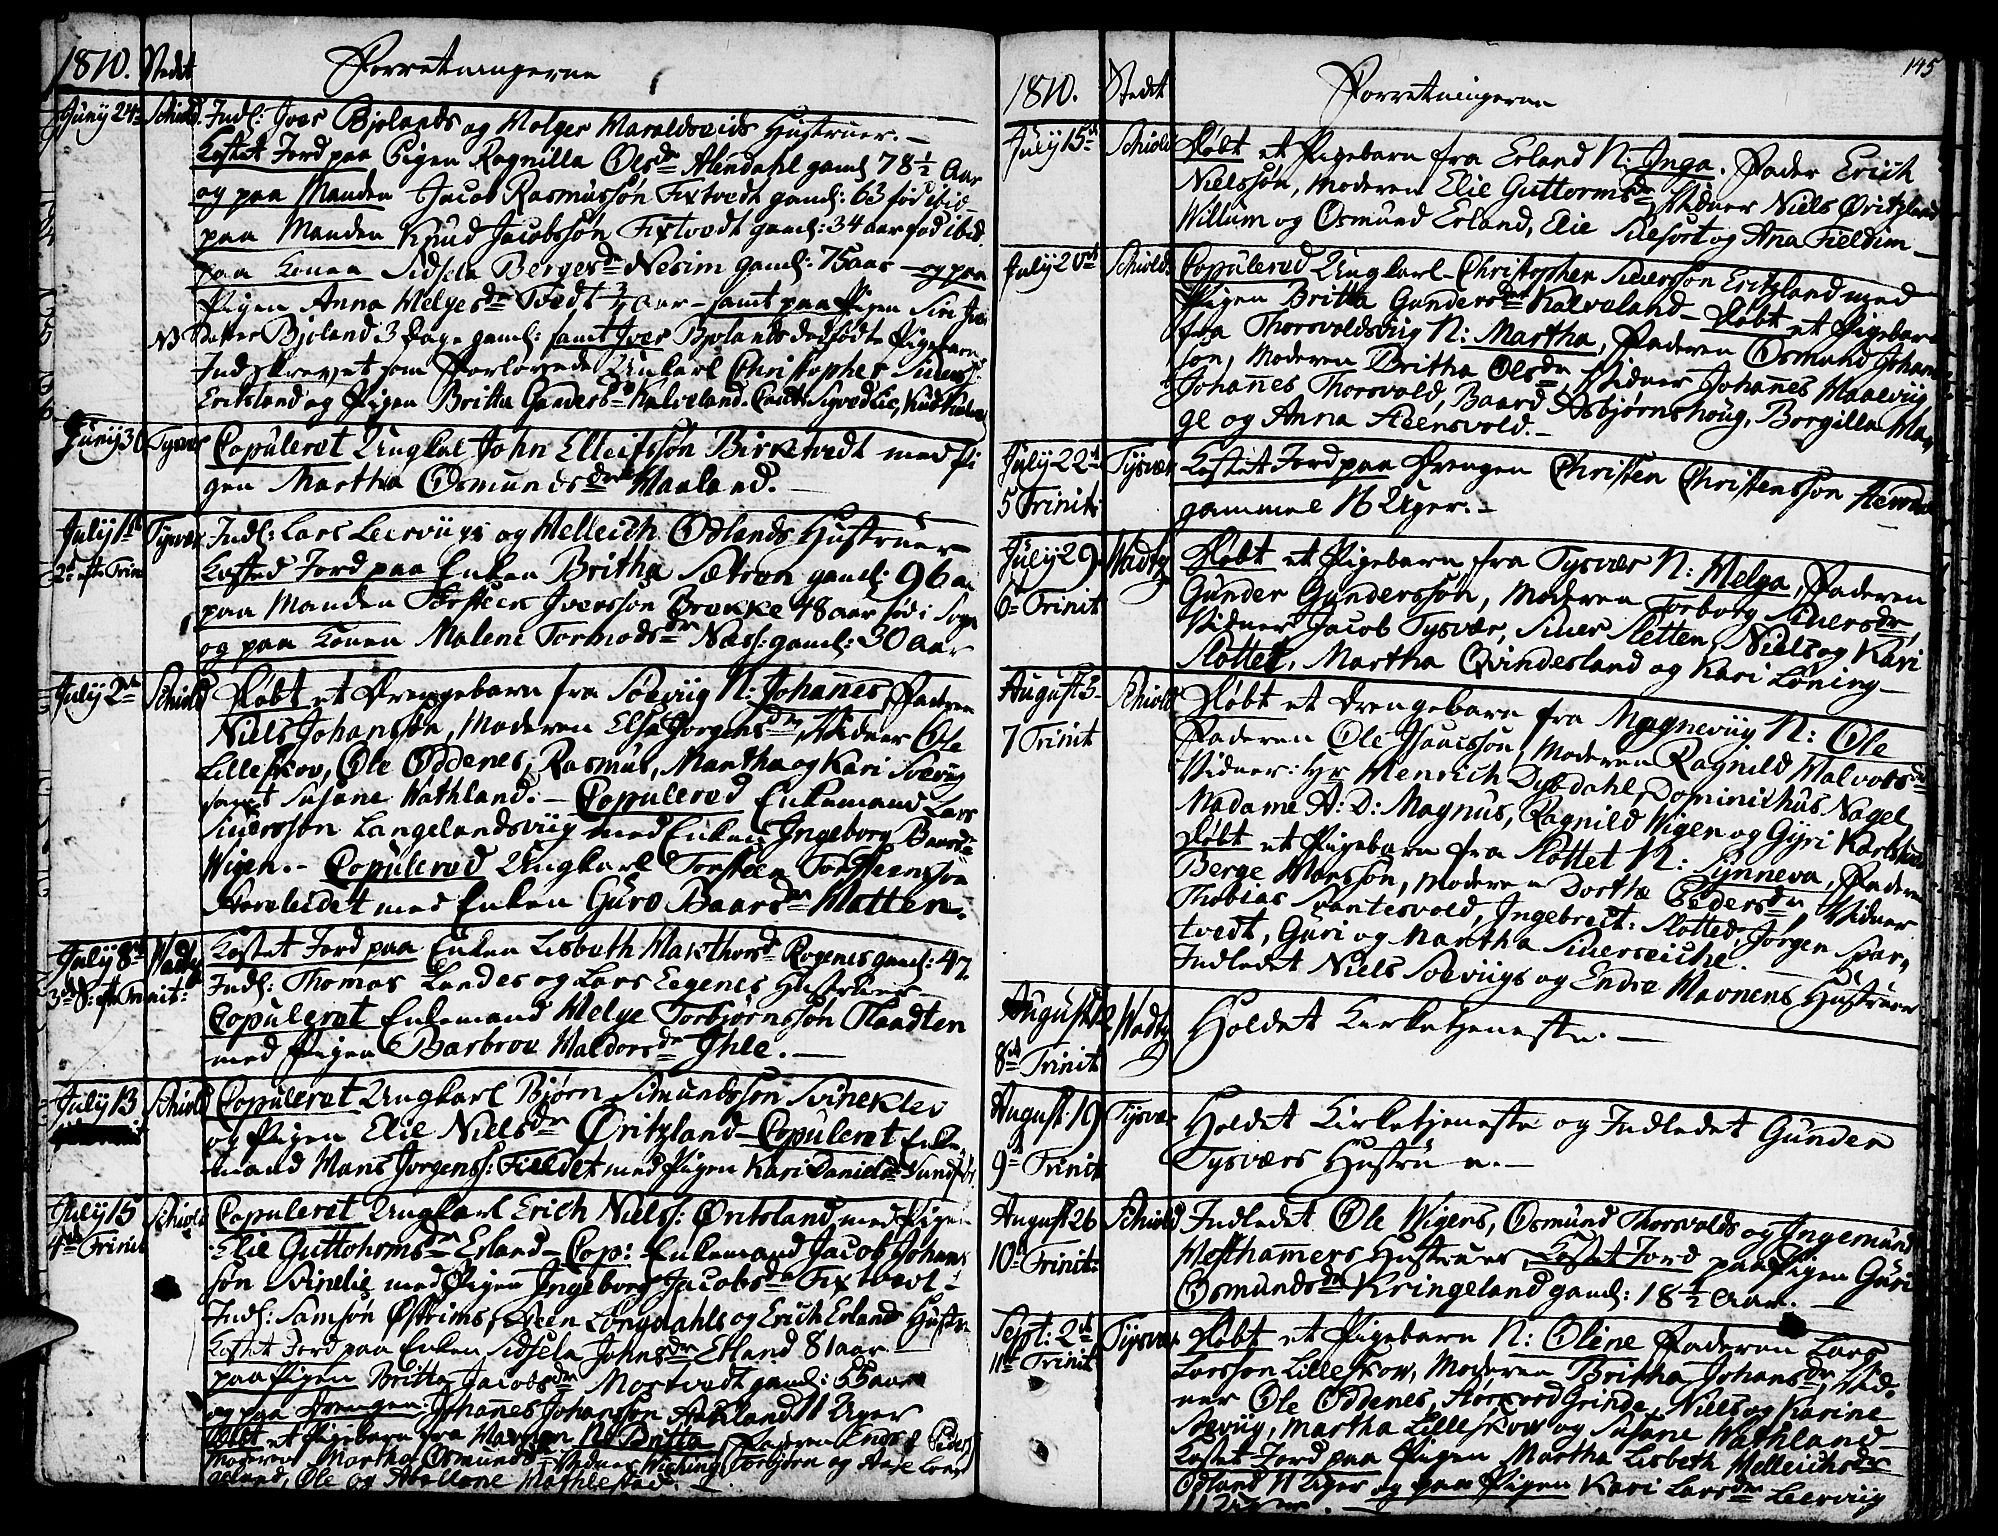 1810. Stedet Forretningerne
Juny 24de Schiold. Indl: Iver Bjolands og Holger Haraldseids Hustruer. —
Kastet Jord paa Pigen Ragnilla Olsdr Alendahl gaml 78 1/2 Aar
og paa Manden Jacob Rasmussøn Fixtvedt gaml: 63 fød ibid
paa Manden Knud Jacobssøn Fixtvedt gaml: 34 aar fød ibid.
paa Konen Sidsela Bergesdr Nesim gaml: 75 aar — og paa
Pigen Anna Helgesdr Tvedt 3/4 Aar — samt paa Pigen Siri Iver
NB Datter Bjoland 3 Dage gaml: samt Iver Bjolands dødfødte Pigebarn
Indskrevet som Forlovede Unkarl Christopher Siverss:
Eritsland og Pigen Britta Gundersdr Kalveland. Caut: Sigved Lie, Knud
Juny 30 Tysvær Copuleret Ungkal John Elleifssøn Birketvedt med Pi
gen Martha Osmundsdr Haaland. —
July 1ste Tysvær Indl: Lars Leerviigs og Helleich Odlands Hustruer
2d efter Trin Kasted Jord paa Enken Britha Sætran gaml: 96 aar
paa Manden Torsteen Iverssøn Brække 48 aar fød i Sogn
og paa Konen Malene Tormodsdr Næss: gaml: 30 aar
July 2den Schiold Døbt et Drengebarn fra Soeviig N: Johanes, Faderen
Niels Johanssøn, Moderen Elsa Jorgensdr, Vidner Ole
Lilleskov, Ole Oddenes, Rasmus, Martha og Kari Soeviig
samt Susane Wathland. — Copulered Enkemand Lars
Siverssøn Langelandsviig med Enken Ingeborg Baardsdr
Wigen. — Copulered Ungkarl Torsteen Torsteenssøn
med Enken Guro Baarsdr Hatten.
July 8de Wadtz Kastet Jord paa Enken Lisbeth Hakthorsdr Rogenes gaml: 47.
3de S: eft Trinit: Indl: Thomas Landes og Lars Eegenes Hustruer
Copuleret Enkemand Helge Torbjørnssøn Flaadten
med Pigen Barbroe Haldorsdr Ihle. —
July 13 Schiold Copuleret Ungkarl Bjørn Simundssøn Svineklev
og Pigen Elie Nielsdr Øritzland — Copuleret Enke
mand Hans Jorgenss: Fieldet med Pigen Kari Danielsdr Sundfør
July 15 Schiold Copuleret Ungkarl Erich Nielss: Øritsland med Pigen
4de Trinit Elie Guttohrmsdr Erland — Cop: Enkemand Jacob Johans
søn Svinelie med Pigen Ingeborg Jacobsdr Fixtvedt
Indl: Samsøn Østrims, Steen Longdahls og Erich Erland Hustr
Kastet Jord paa Enken Sidsela Johnsdr Erland 81 aar
paa Pigen Britta Jacobsdr Mostvedt gaml: 65 aar
og paa Drengen: Johanes Johanssøn Aakland 11 Uger
Døbt et Pigebarn fra Havnen N: Britta, Faderen Endre Peders
Moderen Martha Osmundsdr Vidner Wiching, Torbjørn og Aase
Ole og Abellone Mathbestad. —
145
1810. Stedet Forretningerne
July 15de Schiold Døbt et Pigebarn fra Erland N: Inga. Fader Erich
Nielssøn, Moderen Elie Guttormsdr, Vidner Niels Øritzland
Willum og Osmund Erland, Elie Silfort og Ana Fieldim —
July 20de Schiold: Copulered Ungkarl Christopher Siverssøn Eritzland med
Pigen Britta Gundersdr Kalveland — Døbt et Pigebarn
fra Thorsvoldsviig N: Martha, Faderen Osmund Johanes
søn, Moderen Britha Olsdr, Vidner Johanes Maalviig
Johanes Thorsvold, Baard Asbjørnshoug, Borgilla
ge og Anna Steensvold. —
July 22d Tysvær Kastet Jord paa Drengen Christen Christenssøn
5 Trinit: gammel 16 Uger. —
July 29 Wadtz Døbt et Pigebarn fra Tysvær N: Helga, Faderen
6 Trinit Gunder Gunderssøn, Moderen Torborg Siversdr,
Vidner Jacob Tysvær, Siver Sletten, Niels og Kari
Slottet, Martha Qvindesland og Kari Løning —
August 5 Schiold Døbt et Drengebarn fra Magneviig N: Ole
7 Trinit Faderen Ole Isaacssøn, Moderen Ragnild Halvorsdr
Vidner: Hr Henrich Dybdahl, Dominichus Nagel
Madame A: D: Magnus, Ragnild Wigen og Gyri
Døbt et Pigebarn fra Slottet N: Synneva, Fader
Berge Monssøn, Moderen Dorthe Pedersdr, Vidner
Thobias Svantesvold, Ingebregt: Slotted, Jørgen Svar
tvedt, Guri og Martha Siverseiche. —
Indledet Niels Soeviigs og Endre Havnens Hustruer
August 12 Wadtz Holdet Kirketjeneste. —
8de Trinit
August 19 Tysvær Holdet Kirketjeneste og Indledet Gunder
9de Trinit Tysværs Hustrue. —
August 26 Schiold Indledet Ole Wigens, Osmund Thorsvolds og Ingemund
10de Trinit: Hosthamers Hustruer, Kastet Jord paa Pigen Guri
Osmundsdr Kringeland gaml: 18 1/2 Aar. —
Sept: 2de Tysvær Døbt et Pigebarn N: Oline Faderen Lars
11te Trinit Larssøn Lilleskov, Moderen Britha Johansdr, Vid
ner Ole Oddenes, Grinde, Niels og Karine
Soeviig, Martha Lilleskov og Susane Wathland —
Kastet Jord paa Pigen Martha Lisbeth Helleichsdr
Odland 11 Uger og paa Pigen Kari Larsdr Leerviig
11 Uger. —